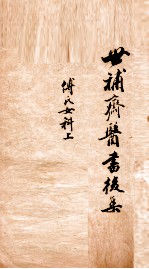 世補齋醫書後集
傅氏女科上